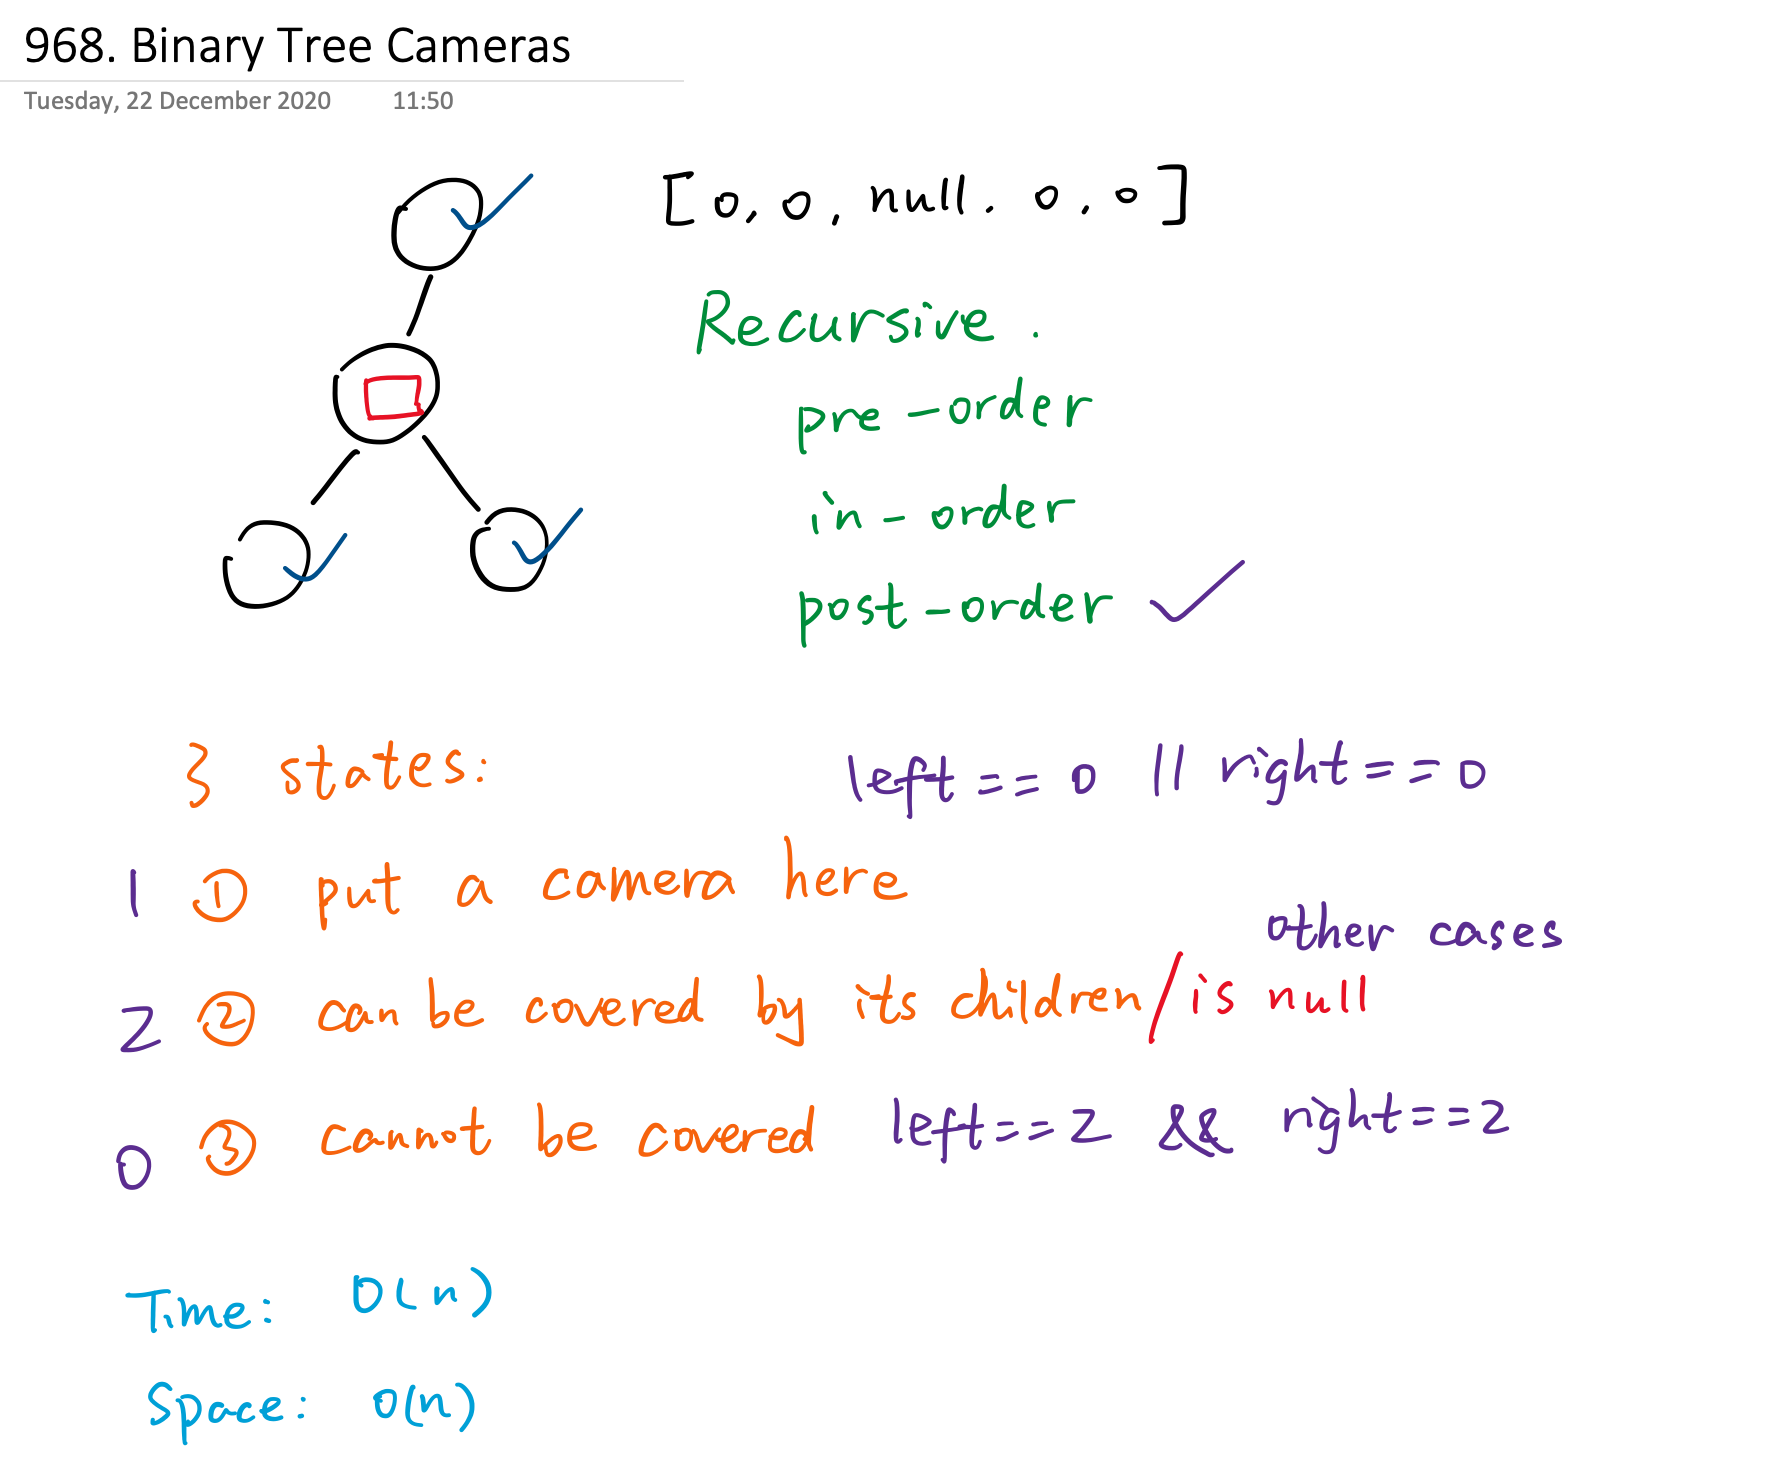 968. Binary Tree Cameras
Tuesday, 22 December 2020 11:50
[0, 0, null. 0, 0]
Recursive.
pre-order
in-order
post-order
3 states:
left == 0 || right == 0
1 ① put a camera here
other cases
2 ② can be covered by its children/is null
0 ③ cannot be covered left==2 && right==2
Time: O(n)
Space: O(n)